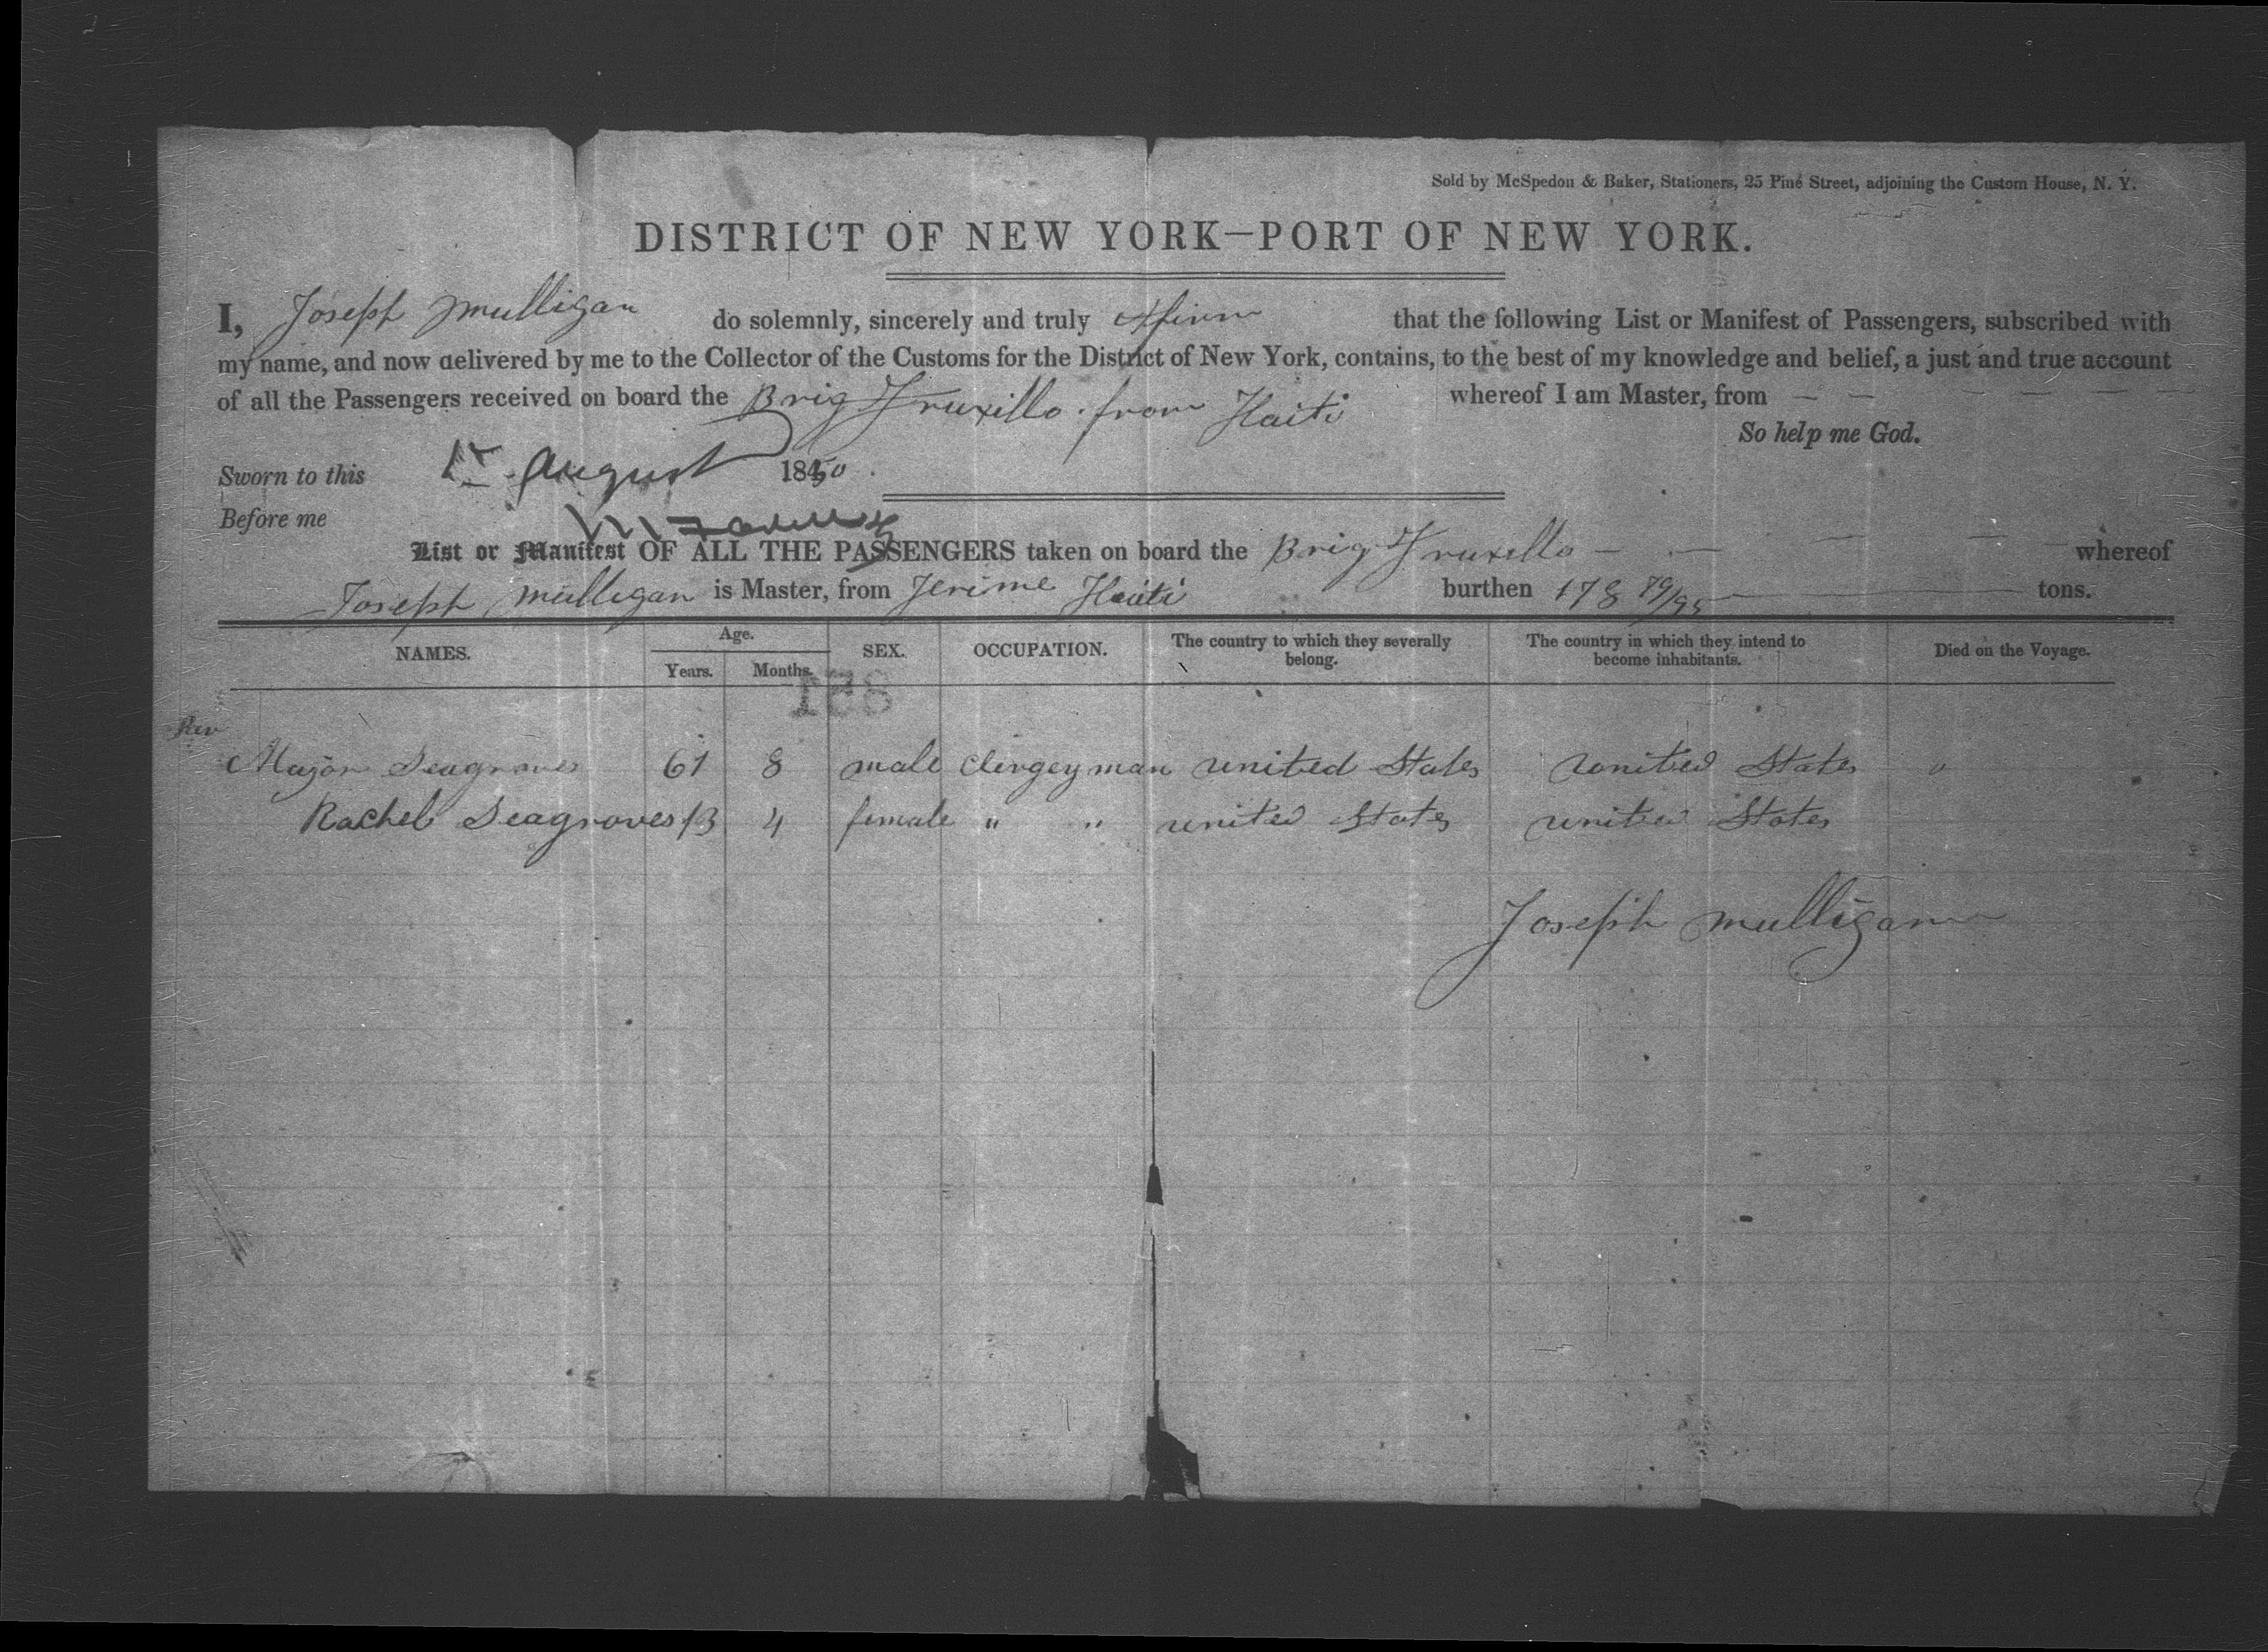 Sold by McSpedon & Baker, Stationers, 25 Pine Street, adjoining the Custom House, N. Y.
DISTRICT OF NEW YORK—PORT OF NEW YORK.
I, Joseph Mulligan do solemnly, sincerely and truly affirm that the following List or Manifest of Passengers, subscribed with
my name, and now delivered by me to the Collector of the Customs for the District of New York, contains, to the best of my knowledge and belief, a just and true account
of all the Passengers received on board the Brig Truxillo from Haiti whereof I am Master, from — — — — —
So help me God.
Sworn to this August 1850
Before me
List or Manifest OF ALL THE PASSENGERS taken on board the Brig Truxillo — — — — whereof
Joseph Mulligan is Master, from Jerime Haiti burthen 178 79/95 tons.
NAMES. Age. Years. Months. SEX. OCCUPATION. The country to which they severally belong. The country in which they intend to become inhabitants. Died on the Voyage.
Rev
Major Seagroves 61 8 male Clergeyman united States united States "
Rachel Seagroves 13 4 female " " united States united States
Joseph Mulligan